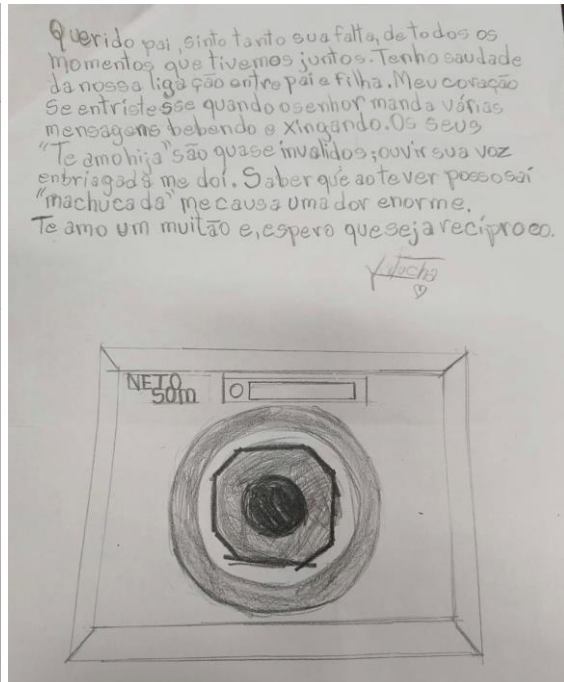 Querido pai, sinto tanto sua falta, de todos os
momentos que tivemos juntos. Tenho saudade
da nossa ligação entre pai e filha. Meu coração
se entristesse quando o senhor manda várias
mensagens bebendo e xingando. Os seus
"Te amo hija" são quase invalidos; ouvir sua voz
enbriagada me doi. Saber que ao te ver posso saí
"machucada" me causa uma dor enorme.
Te amo um muitão e, espero que seja recíproco.
NETO
SOM